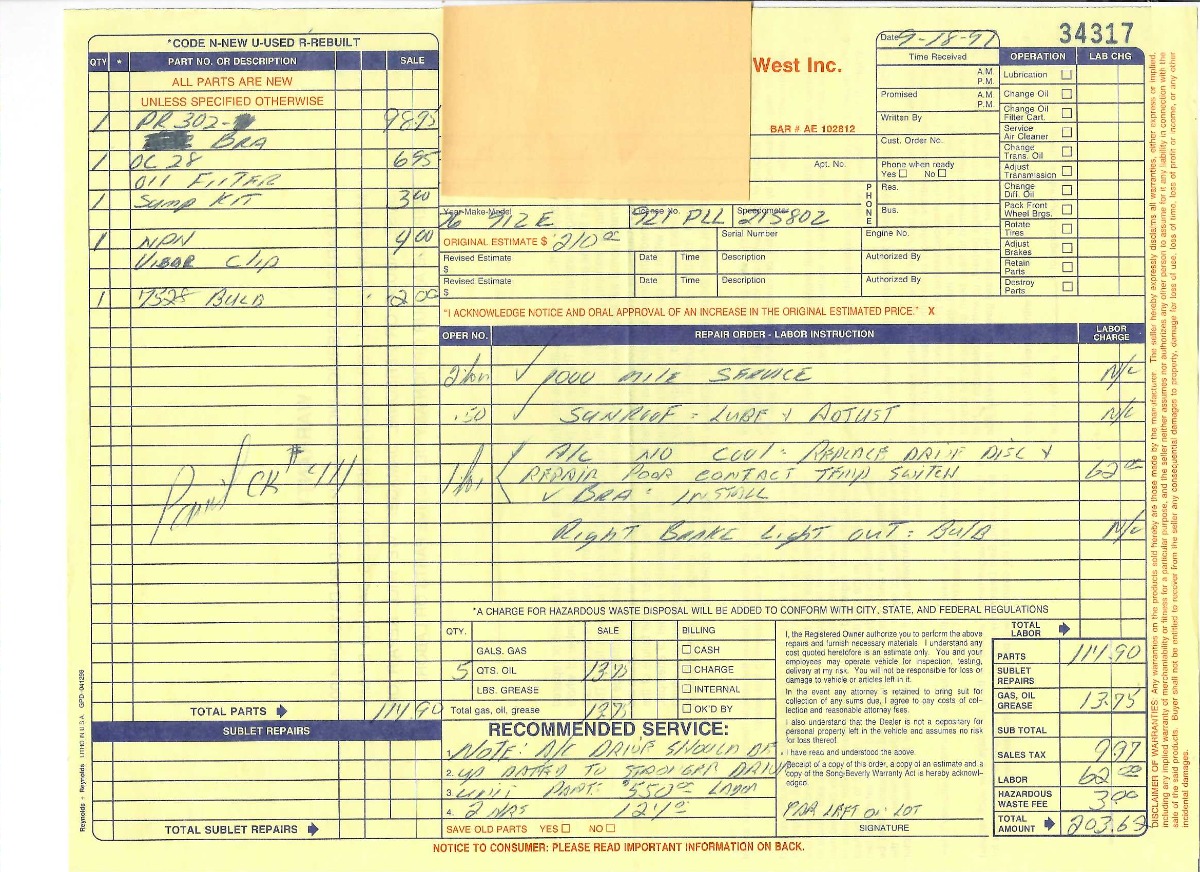 *CODE N-NEW U-USED R-REBUILT
QTY * PART NO. OR DESCRIPTION SALE
ALL PARTS ARE NEW
UNLESS SPECIFIED OTHERWISE
1 PR302- 98.95
BRA
1 OC 28 6 95
OIL FILTER
1 SUMP KIT 3 00
1 NPN 4 00
VISOR CLIP
1 7528 BULB 2 00
CK # 411
TOTAL PARTS 114 90
SUBLET REPAIRS
TOTAL SUBLET REPAIRS
West Inc.
BAR # AE 102812
Apt. No.
Date 9-18-97
34317
Time Received
A.M.
P.M.
Promised A.M.
P.M.
Written By
Cust. Order No.
Phone when ready
Yes No
PHONE
Res.
Bus.
OPERATION LAB CHG
Lubrication
Change Oil
Change Oil
Filter Cart.
Service
Air Cleaner
Change
Trans. Oil
Adjust
Transmission
Change
Diff. Oil
Pack Front
Wheel Brgs.
Rotate
Tires
Adjust
Brakes
Retain
Parts
Destroy
Parts
Year-Make-Model License No. Speedometer
76 912 E 921 PLL 215802
ORIGINAL ESTIMATE $ 210 00 Serial Number Engine No.
Revised Estimate Date Time Description Authorized By
$
Revised Estimate Date Time Description Authorized By
$
"I ACKNOWLEDGE NOTICE AND ORAL APPROVAL OF AN INCREASE IN THE ORIGINAL ESTIMATED PRICE." X
OPER NO. REPAIR ORDER - LABOR INSTRUCTION LABOR
CHARGE
✓ 1000 MILE SERVICE N/C
.50 SUNROOF = LUBE + ADJUST N/C
A/C NO COOL - REPLACE DRIVE DISC +
REPAIR POOR CONTACT TEMP SWITCH 62 00
✓ BRA : INSTALL
RIGHT BRAKE LIGHT OUT : BULB N/C
*A CHARGE FOR HAZARDOUS WASTE DISPOSAL WILL BE ADDED TO CONFORM WITH CITY, STATE, AND FEDERAL REGULATIONS
QTY. SALE BILLING
GALS. GAS CASH
5 QTS. OIL 13.75 CHARGE
LBS. GREASE INTERNAL
Total gas, oil, grease 13.75 OK'D BY
RECOMMENDED SERVICE:
NOTE: A/C DRIVE SHOULD BE
2. UP DATED TO STRONGER DRIVE
3. UNIT PART: $550 00 LABOR
4. 2 HRS 124 00
SAVE OLD PARTS YES NO
I, the Registered Owner authorize you to perform the above
repairs and furnish necessary materials. I understand any
cost quoted heretofore is an estimate only. You and your
employees may operate vehicle for inspection, testing,
delivery at my risk. You will not be responsible for loss or
damage to vehicle or articles left in it.
In the event any attorney is retained to bring suit for
collection of any sums due, I agree to any costs of col-
lection and reasonable attorney fees.
I also understand that the Dealer is not a depositary for
personal property left in the vehicle and assumes no risk
for loss thereof.
I have read and understood the above.
Receipt of a copy of this order, a copy of an estimate and a
copy of the Song-Beverly Warranty Act is hereby acknowl-
edged.
LEFT ON LOT
SIGNATURE
TOTAL
LABOR
PARTS 114.90
SUBLET
REPAIRS
GAS, OIL
GREASE 13.75
SUB TOTAL
SALES TAX 9.97
LABOR 62 00
HAZARDOUS
WASTE FEE 3 00
TOTAL
AMOUNT 203.62
NOTICE TO CONSUMER: PLEASE READ IMPORTANT INFORMATION ON BACK.
Reynolds + Reynolds LITHO IN U.S.A. GPD 041298
DISCLAIMER OF WARRANTIES: Any warranties on the products sold hereby are those made by the manufacturer. The seller hereby expressly disclaims all warranties, either express or implied,
including any implied warranty of merchantability or fitness for a particular purpose, and the seller neither assumes nor authorizes any other person to assume for it any liability in connection with the
sale of the said products. Buyer shall not be entitled to recover from the seller any consequential damages to property, damage for loss of use, loss of time, loss of profit or income, or any other
incidental damages.